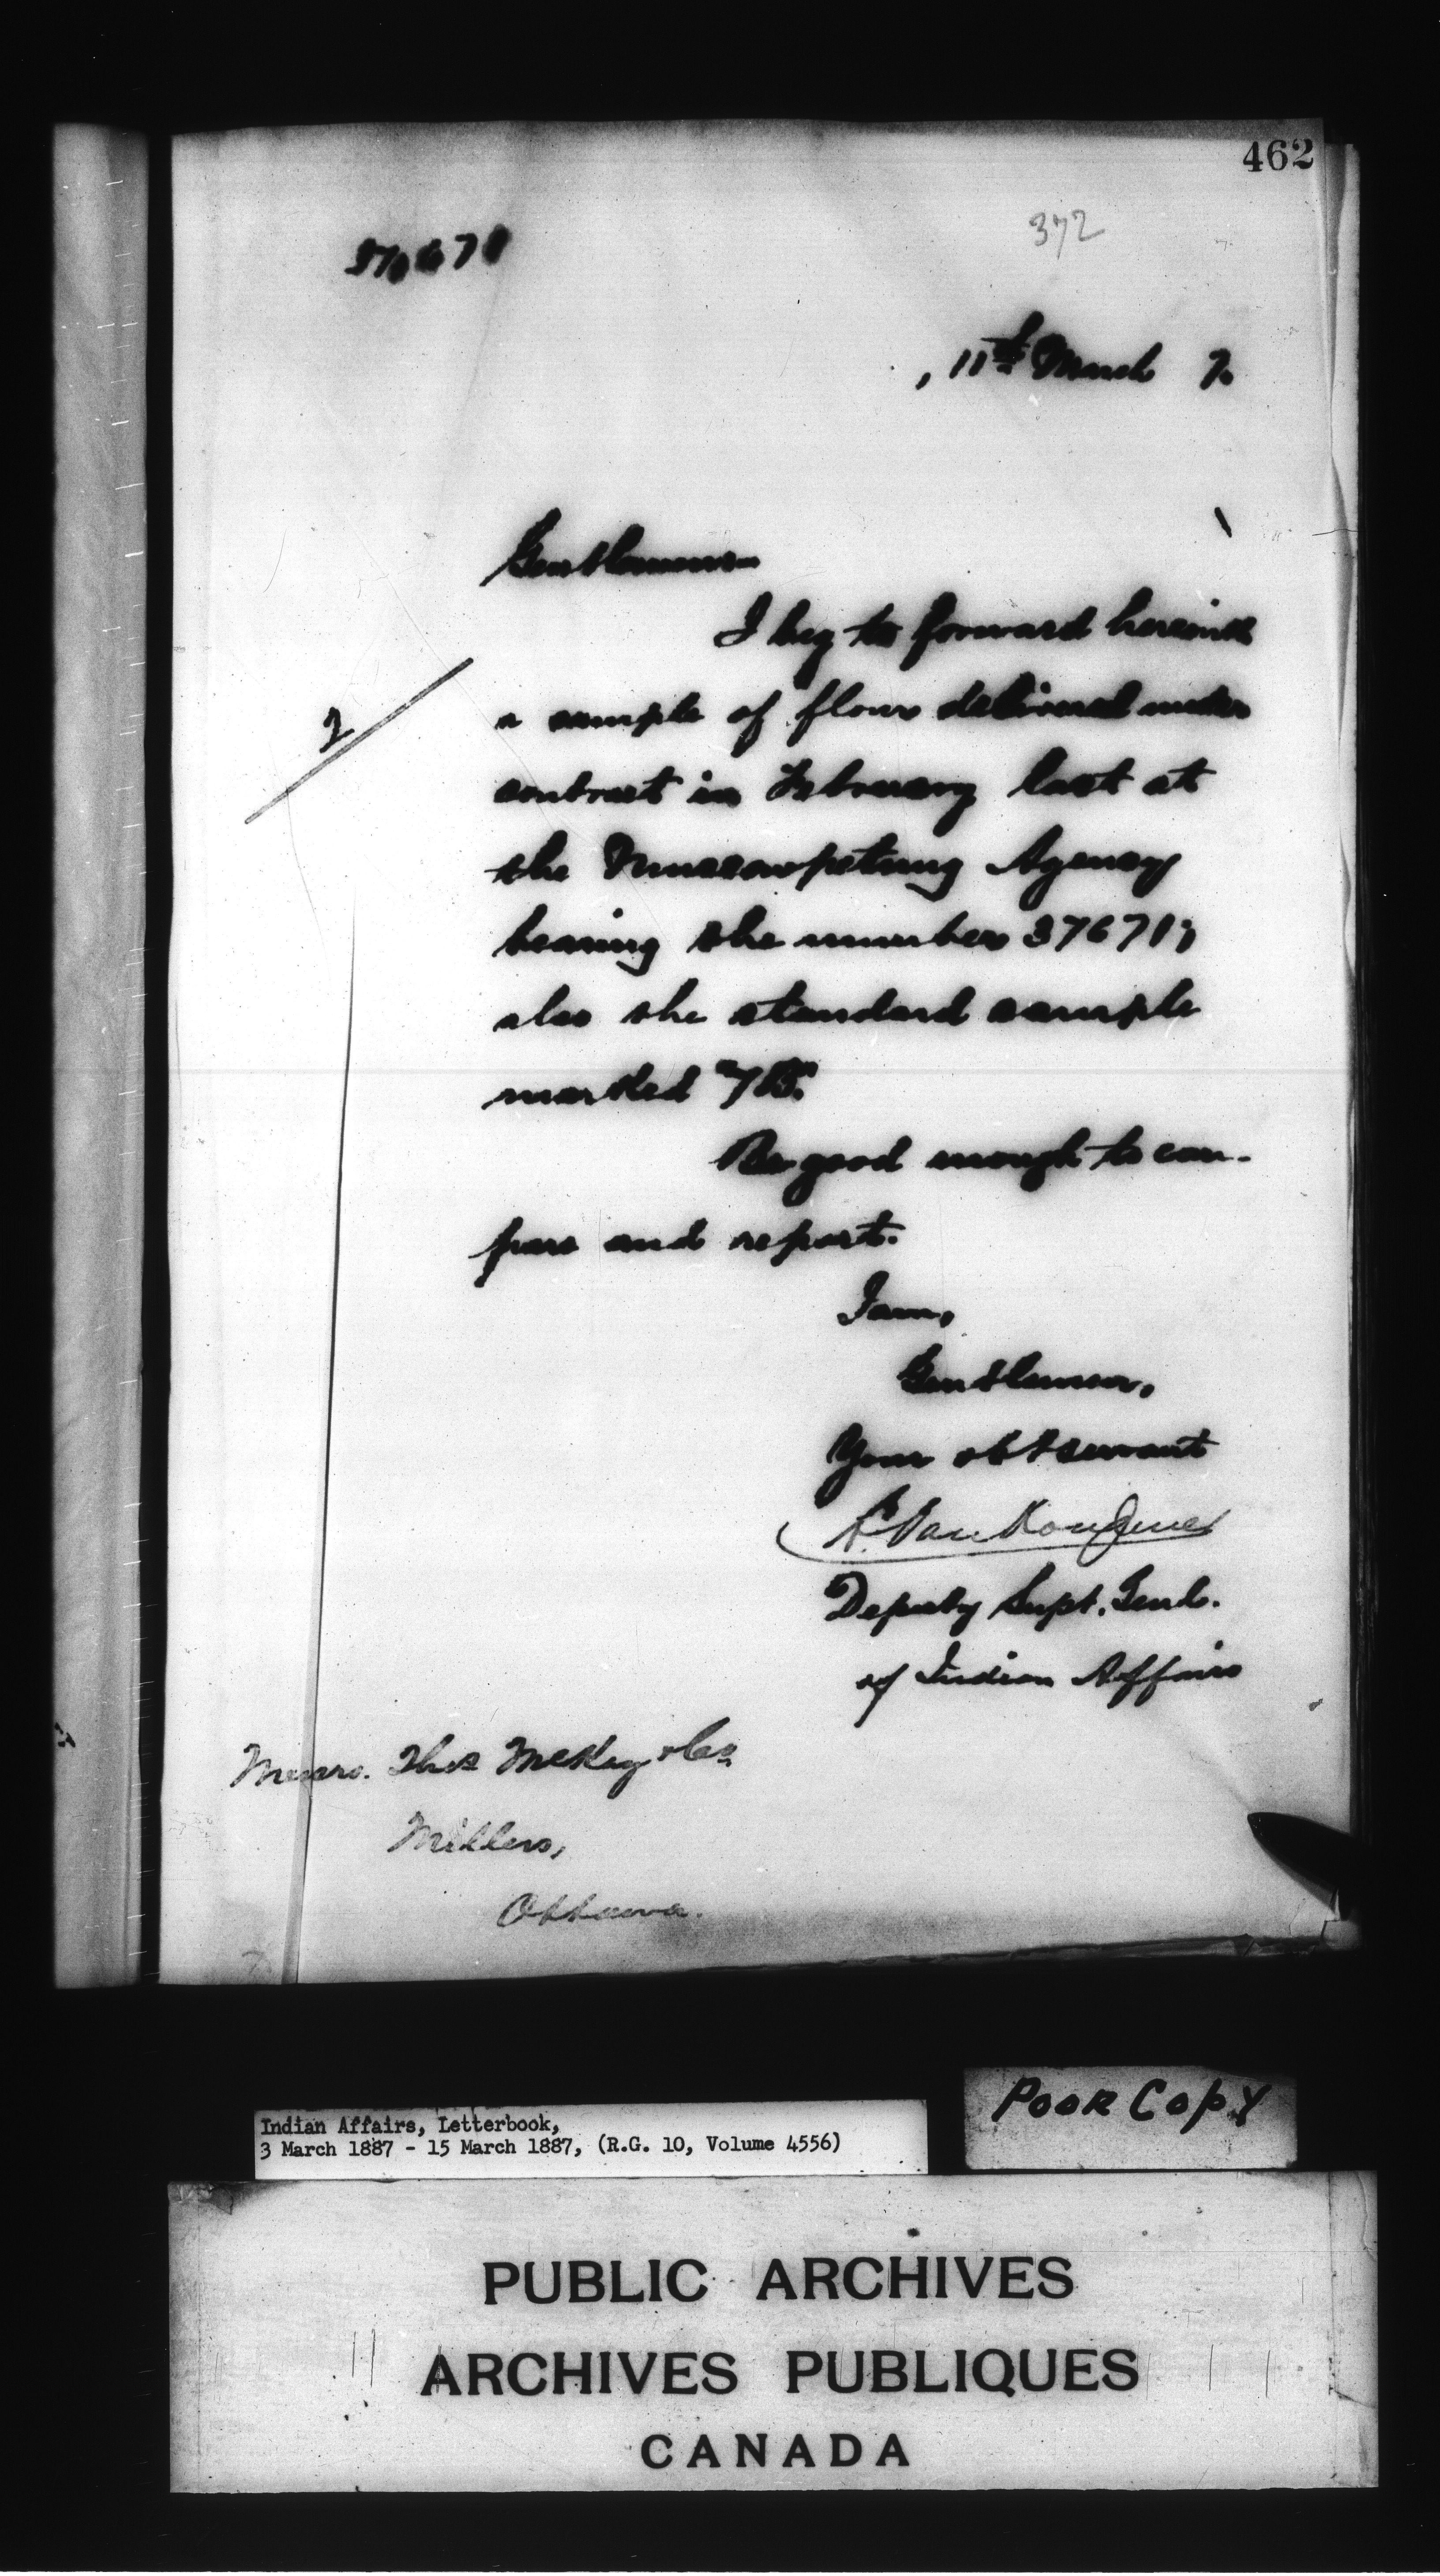 462
372
37671
11th March 7.
Gentlemen,
I beg to forward herewith
2
a sample of flour delivered under
contract in February last at
the Muscowpetung Agency
bearing the number 37671;
also the standard sample
marked "7B."
Be good enough to com-
pare and report.
I am,
Gentlemen,
Your obt servant
L. VanKoughnet
Deputy Supt. Genl.
of Indian Affairs
Messrs. Thos McKay & Co.
Millers,
Ottawa.
POOR COPY
Indian Affairs, Letterbook,
3 March 1887 - 15 March 1887, (R.G. 10, Volume 4556)
PUBLIC ARCHIVES
ARCHIVES PUBLIQUES
CANADA